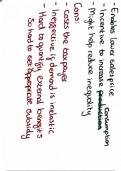 - Enables lower sales price
- Incentive to increase consumption
- Might help reduce inequality
Cons:
- Costs the taxpayer
- Ineffective if demand is inelastic
- Hard to quantify external benefits
So hard to set appropriate subsidy